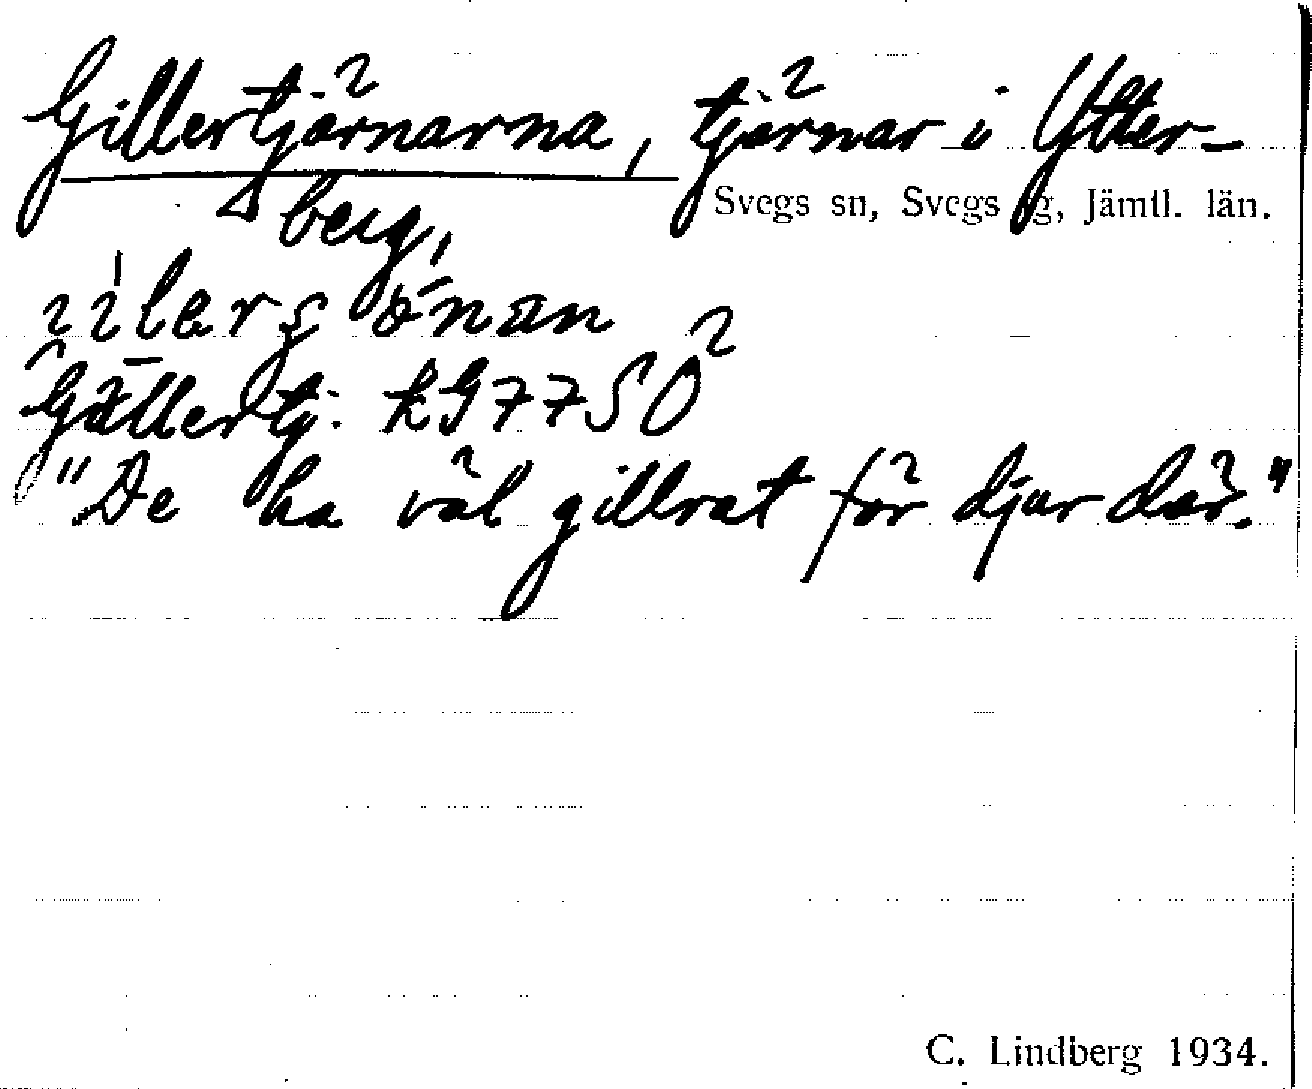 Gillertjärnarna, tjärnar i Ytter-
Svegs sn, Svegs tg, Jämtl. län.
berg,
Gällertj. KG7750
"De ha väl gillrat för djur där."
C. Lindberg 1934.